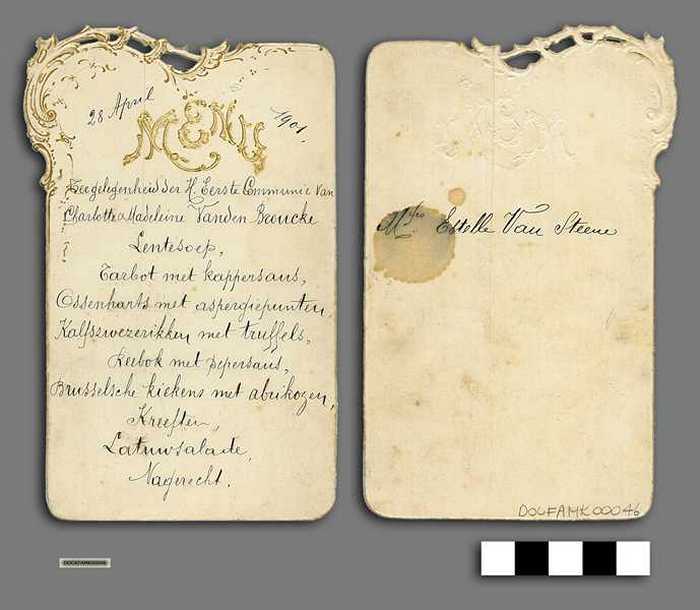 28 April 1901.
MENU
Ter gelegenheid der H. Eerste Communie van
Charlotte & Madeleine Vanden Broucke
Lentesoep,
Tarbot met kappersaus,
Ossenharts met aspergiepunten,
Kalfszwezerikken met truffels,
Reebok met pepersaus,
Brusselsche kiekens met abrikozen,
Kreeften,
Latuwsalade,
Nagerecht.
Estelle Van Steene
DOCFAMK00046